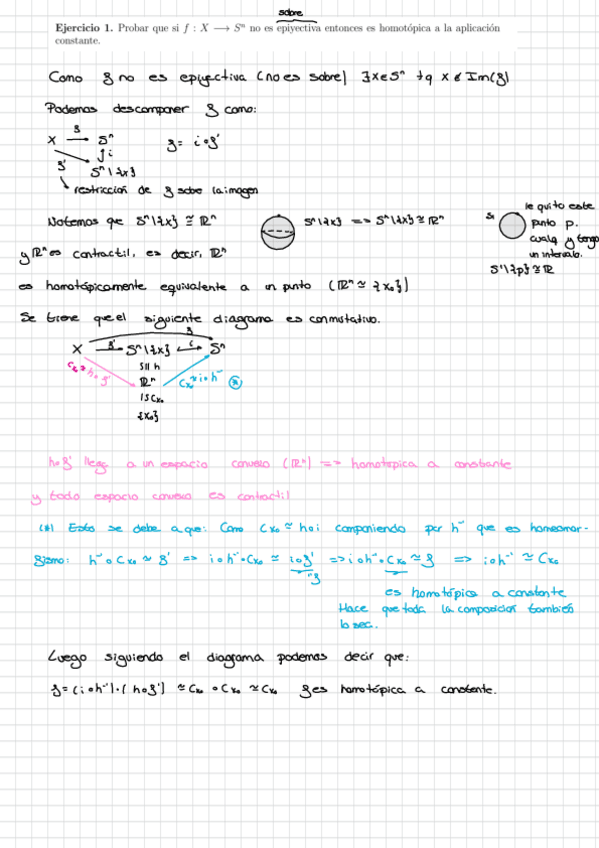 sobre
Ejercicio 1. Probar que si f : X ⟶ Sⁿ no es epiyectiva entonces es homotópica a la aplicación
constante.
Como f no es epiyectiva (no es sobre) ∃x∈Sⁿ tq x ∉ Im(f)
Podemos descomponer f como:
f
X ⟶ Sⁿ f = i∘f'
f' ↑i
Sⁿ\{x}
↳ restriccion de f sobre la imagen
le quito este
Notemos que Sⁿ\{x} ≅ ℝⁿ Sⁿ\{x} => Sⁿ\{x} ≅ ℝⁿ S¹ punto p.
cualq y tengo
y ℝⁿ es contractil, es decir, ℝⁿ un intervalo.
S¹\{p} ≅ ℝ
es homotópicamente equivalente a un punto (ℝⁿ ≃ {x₀})
Se tiene que el siguiente diagrama es conmutativo.
f
X f' Sⁿ\{x} i Sⁿ
h
Cx₀ ≃ h∘f' ℝⁿ Cx₀ ≃ i∘h⁻¹ (*)
≀ Cx₀
{x₀}
h∘f' llega a un espacio convexo (ℝⁿ) => homotopica a constante
y todo espacio convexo es contractil
(*) Esto se debe a que: Como Cx₀ ≃ h∘i componiendo por h⁻¹ que es homeomor-
fismo: h⁻¹∘Cx₀ ≃ f' => i∘h⁻¹∘Cx₀ ≃ i∘f' => i∘h⁻¹∘Cx₀ ≃ f => i∘h⁻¹ ≃ Cx₀
"f
es homotópica a constante
Hace que toda la composicion también
lo sea.
Luego siguiendo el diagrama podemos decir que:
f = (i∘h⁻¹)∘(h∘f') ≃ Cx₀ ∘ Cx₀ ≃ Cx₀ f es homotópica a constante.